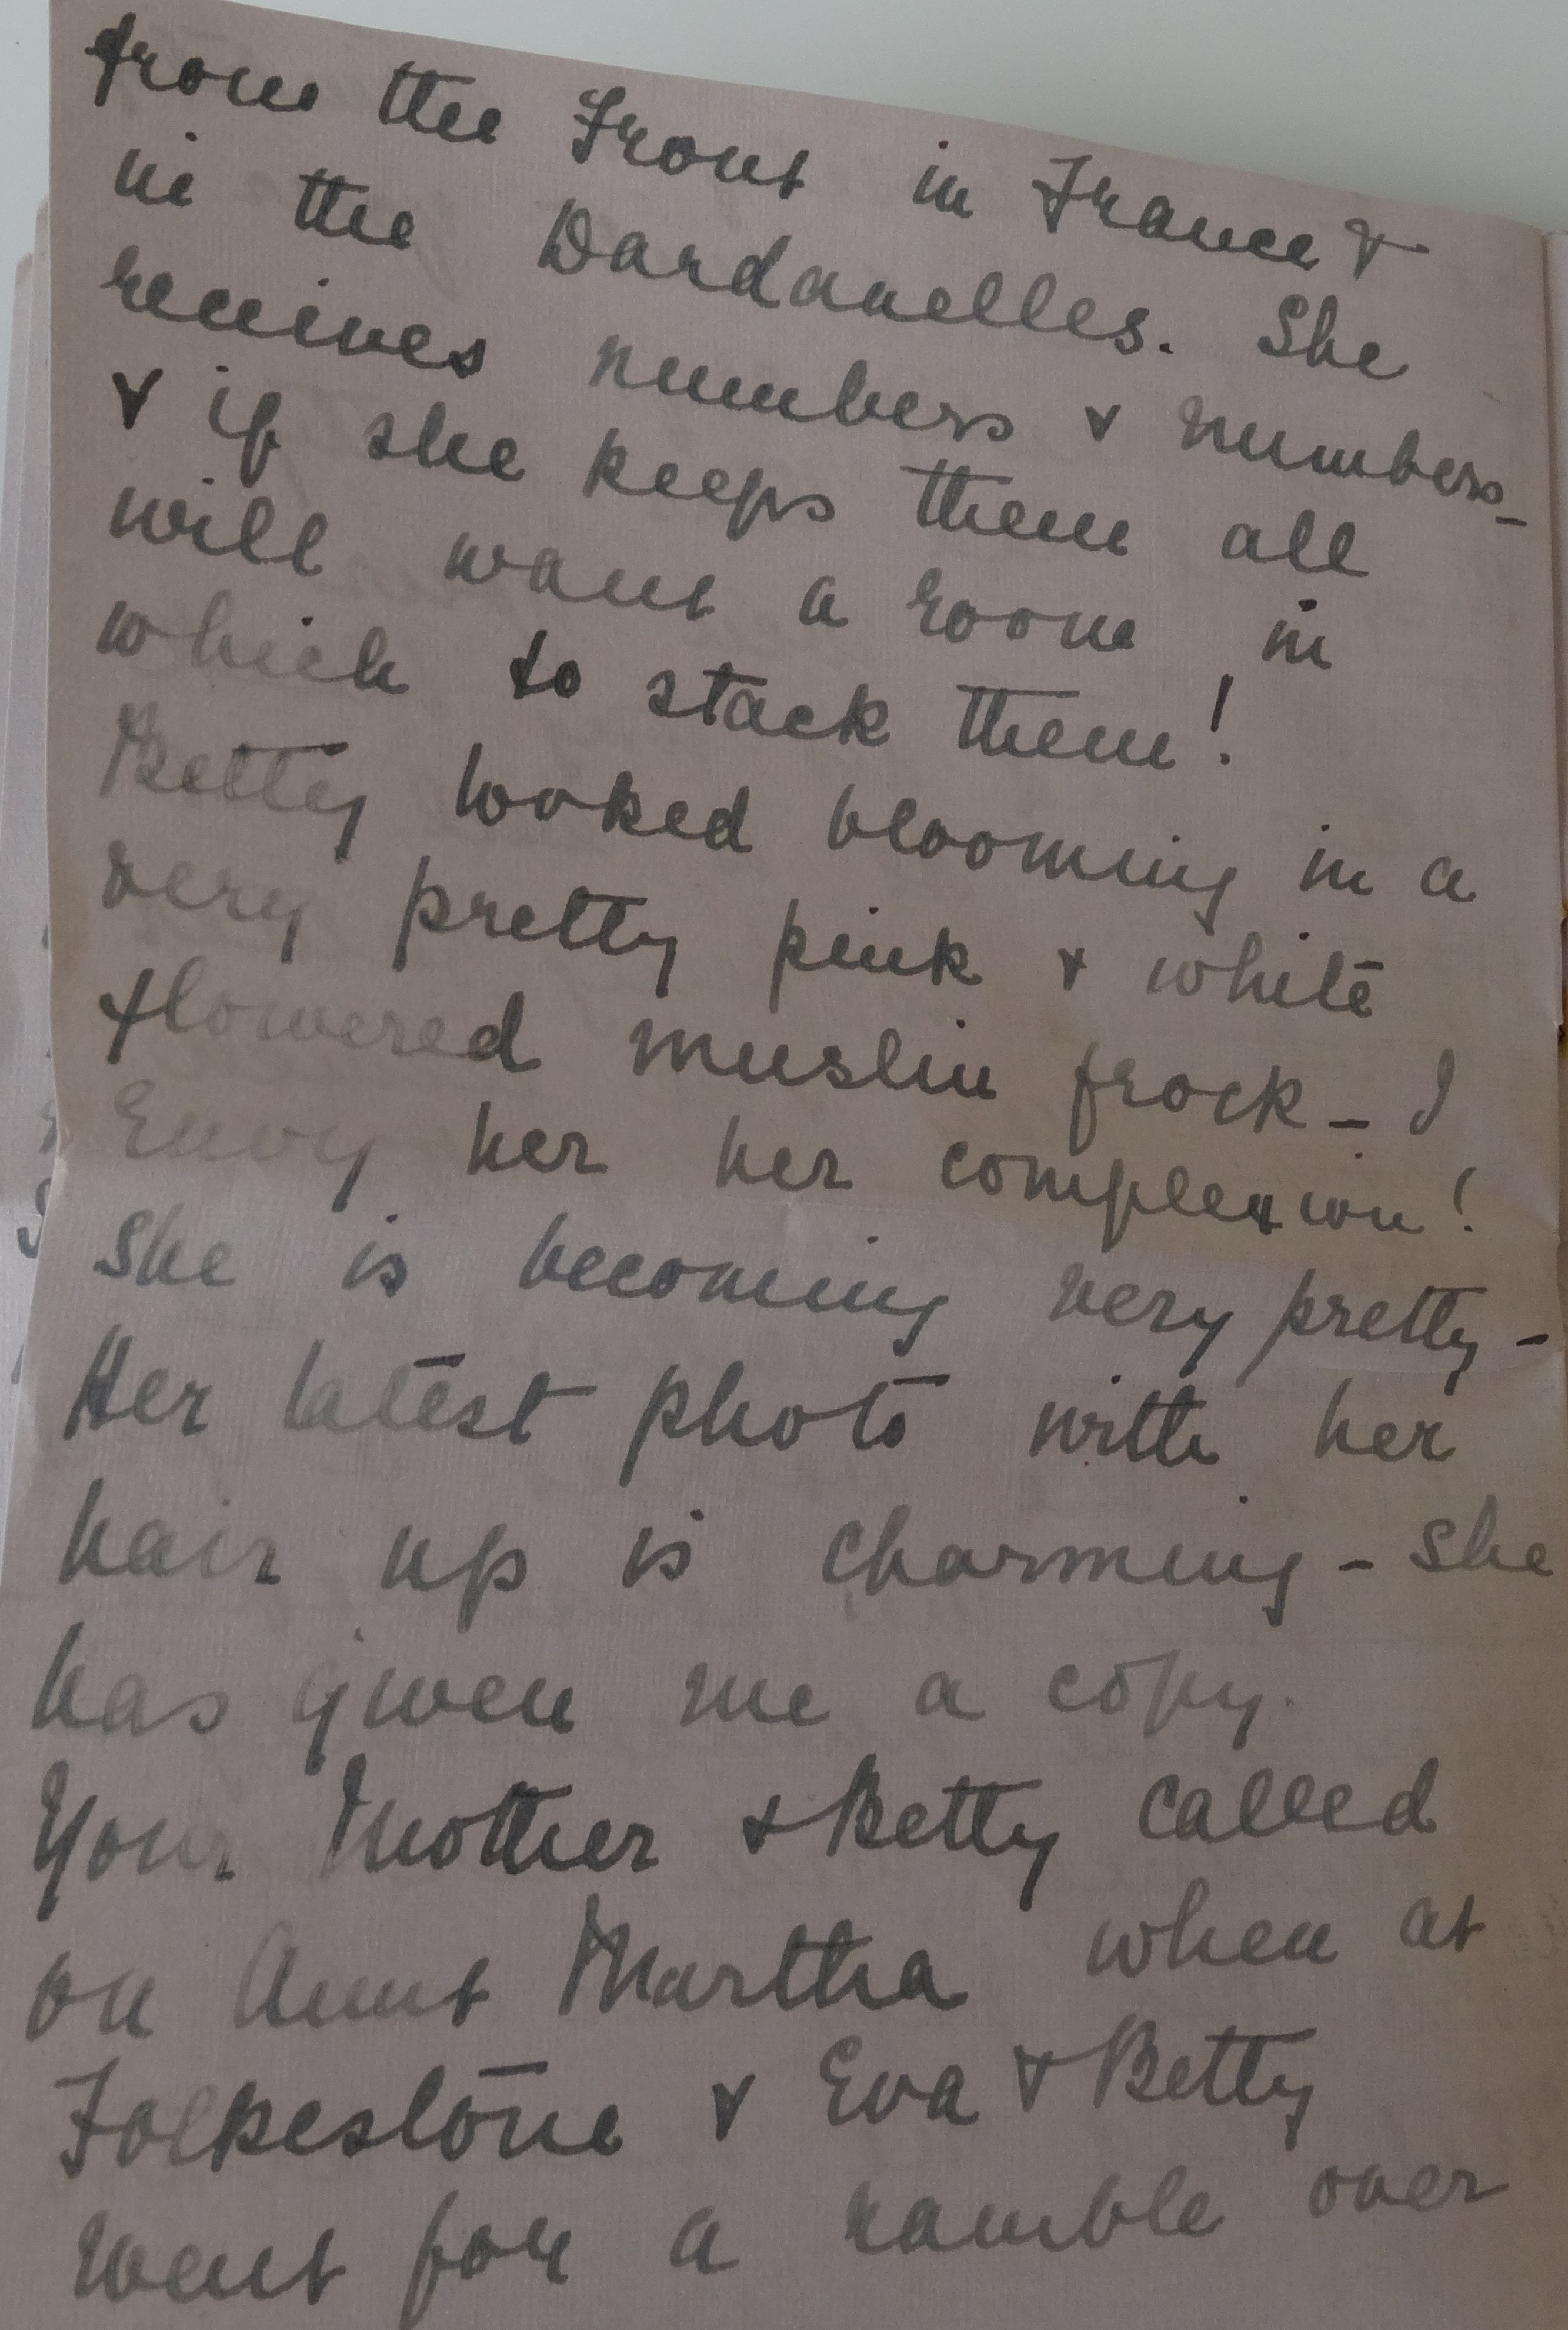 from the Front in France &
in the Dardanelles. She
receives numbers & numbers -
& if she keeps them all
will want a room in
which to stack them!
Betty looked blooming in a
very pretty pink & white
flowered muslin frock - I
Envy her her complexion!
She is becoming very pretty -
Her latest photo with her
hair up is charming - she
has given me a copy.
Your Mother & Betty called
on Aunt Martha when at
Folkestone & Eva & Betty
went for a ramble over